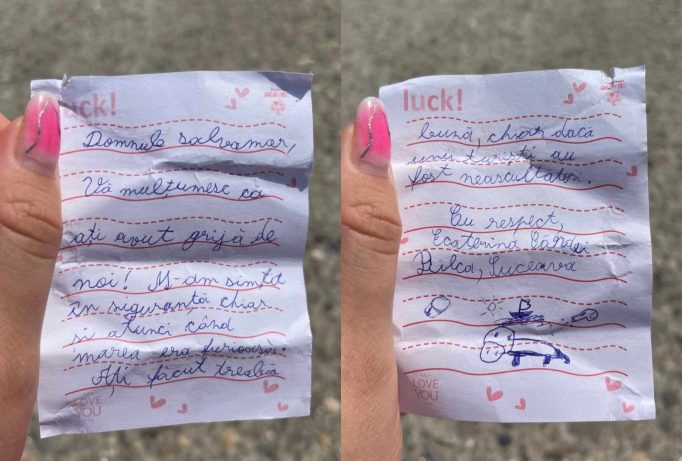 uck!
Domnule salvamar,
Vă mulțumesc că
ați avut grijă de
noi! M-am simțit
în siguranță chiar
si atunci când
marea era furioasă.
Ați făcut treabă
LOVE
YOU
luck!
bună, chiar dacă
unii turisti au
fost neascultatori.
Cu respect,
Ecaterina
Pilca, Suceava
LOVE
YOU